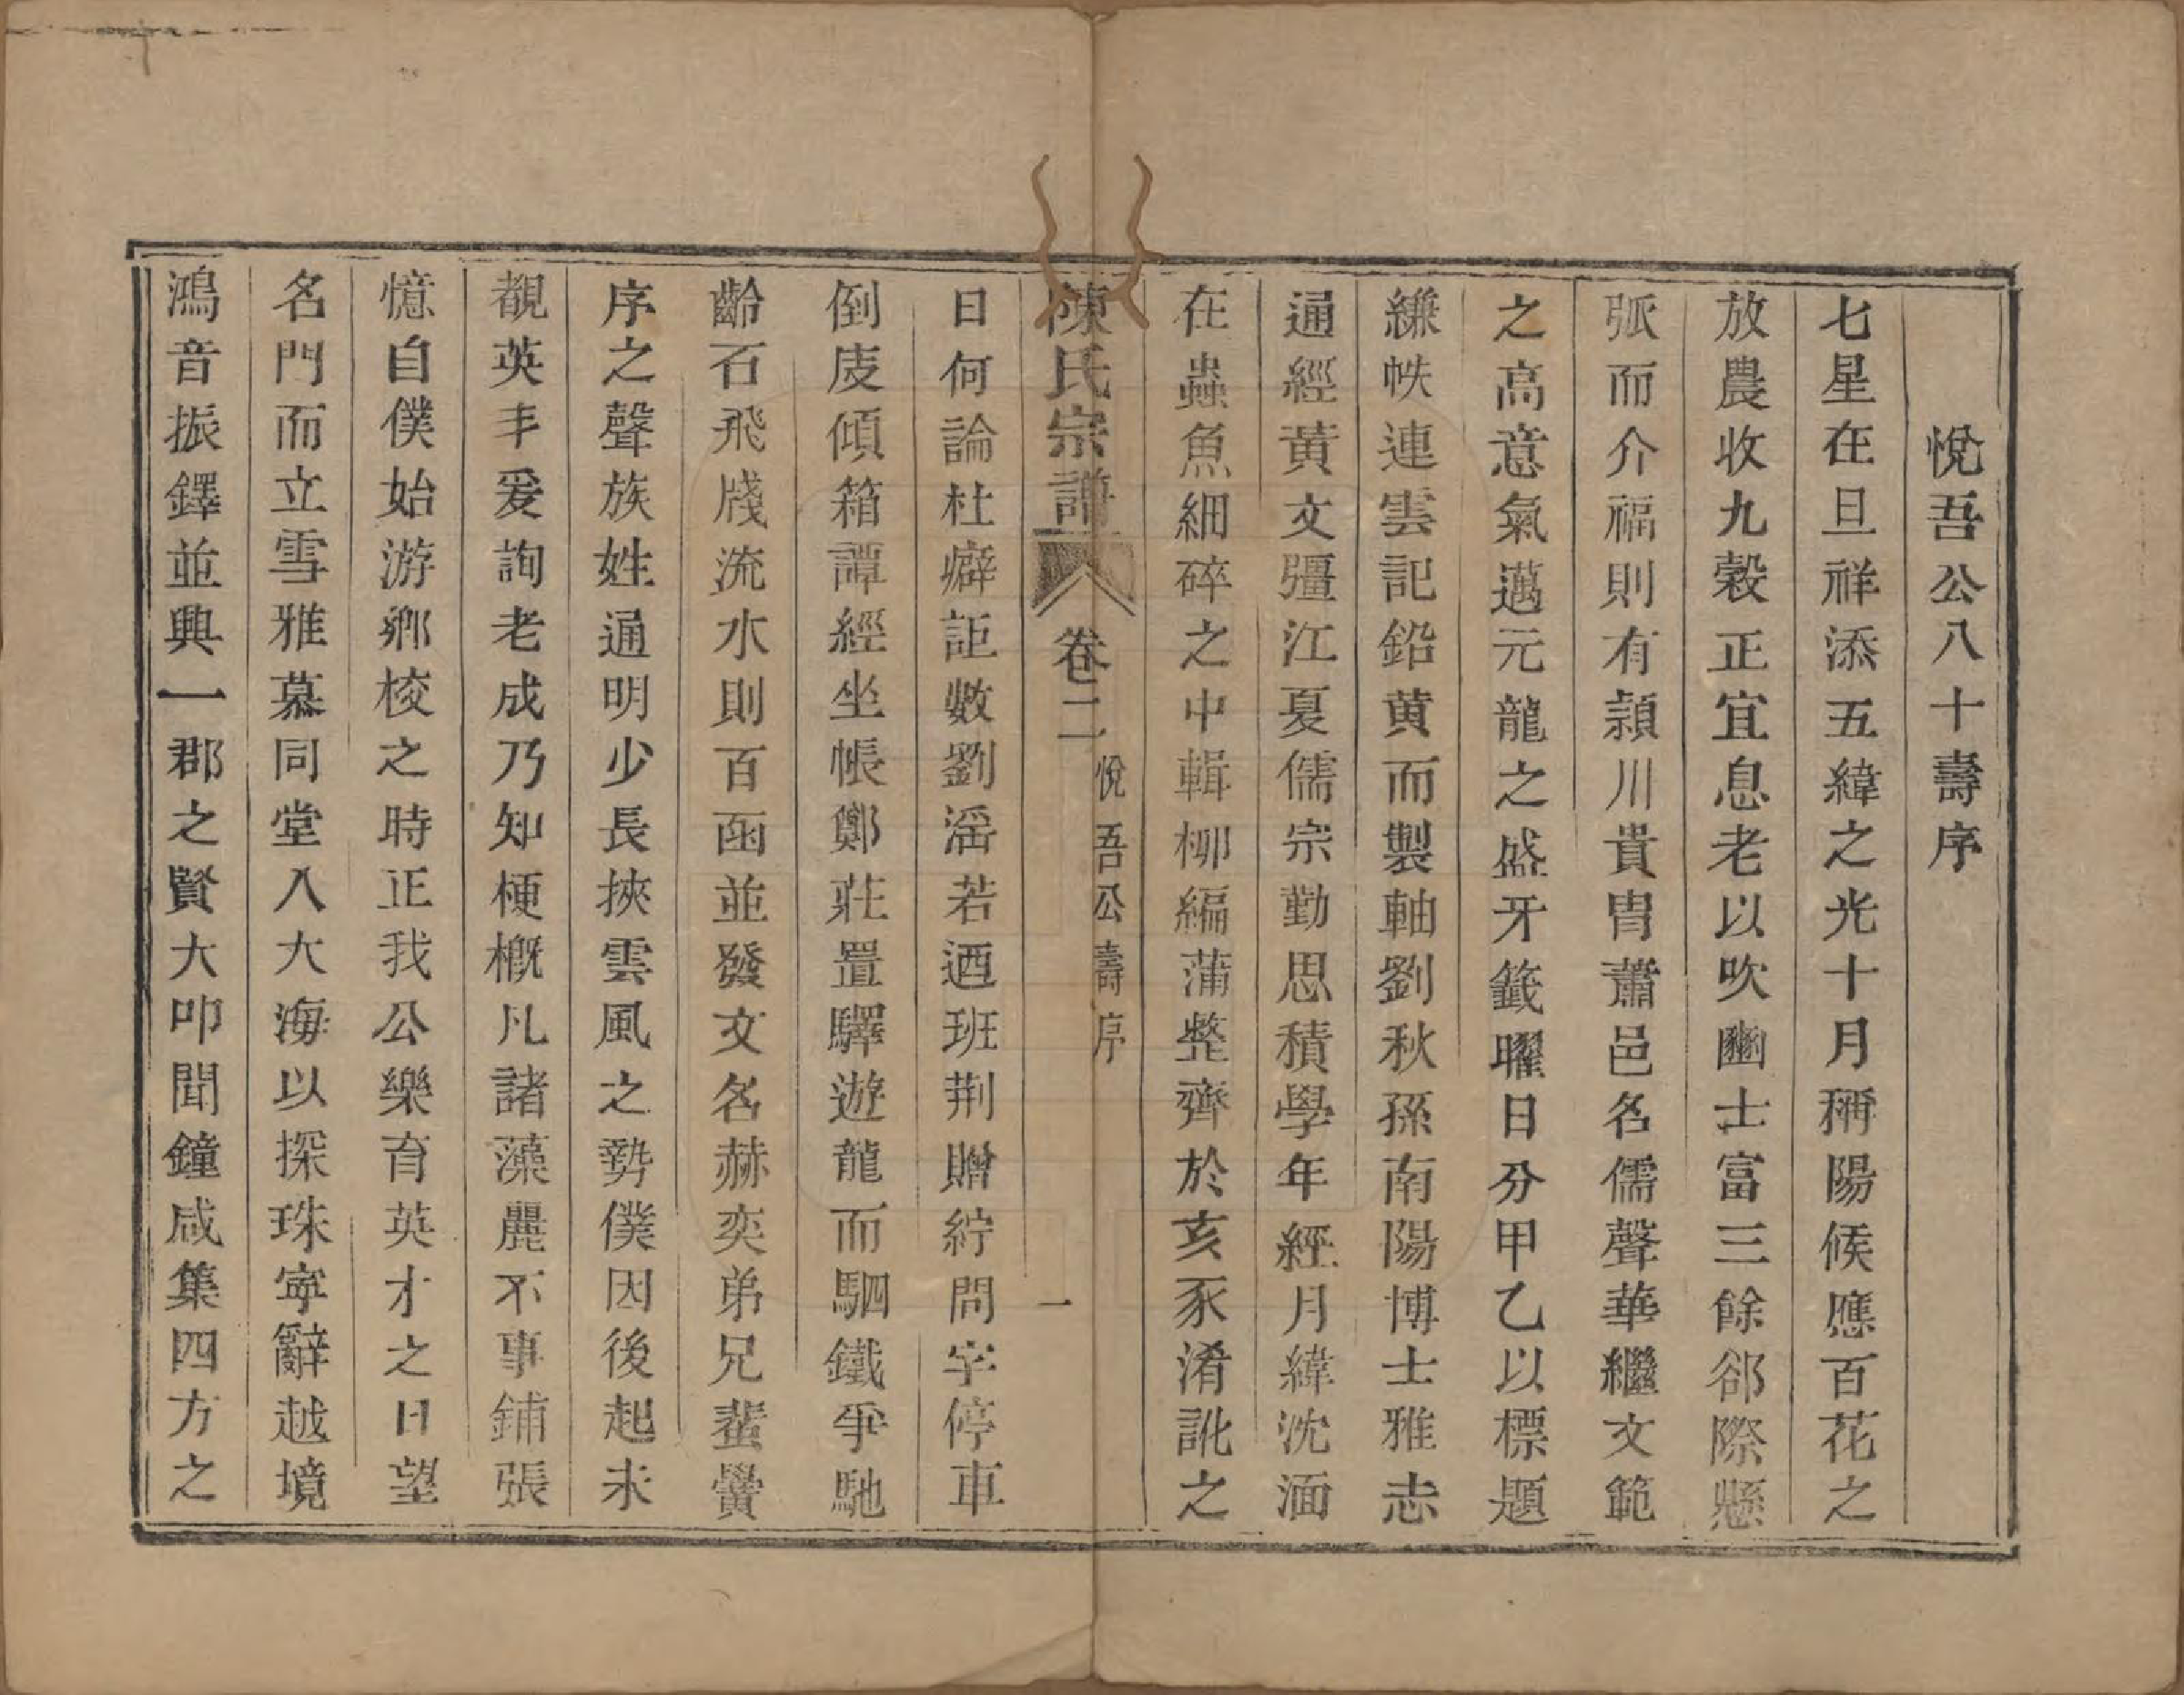 悅吾公八十壽序
七星在旦祥添五緯之光十月稱陽候應百花之
放農收九穀正宜息老以吹豳士富三餘郤際懸
弧而介福則有潁川貴冑蕭邑名儒聲華繼文範
之高意氣邁元龍之盛牙籤曜日分甲乙以標題
縑帙連雲記鉛黄而製軸劉秋孫南陽博士雅志
通經黄文彊江夏儒宗勤思積學年經月緯沈湎
在蟲魚細碎之中輯柳編蒲整齊於亥豕淆訛之
陳氏宗譜
卷二
悅吾公壽序
一
日何論杜癖詎數劉淫若迺班荆贈紵問字停車
倒庋傾箱譚經坐帳鄭莊置驛遊龍而駟鐵爭馳
齡石飛牋流水則百函並發文名赫奕弟兄蜚黌
序之聲族姓通明少長挾雲風之勢僕因後起未
覩英丰爰詢老成乃知梗概凡諸藻麗不事鋪張
憶自僕始游鄉校之時正我公樂育英才之日望
名門而立雪雅慕同堂入大海以探珠寧辭越境
鴻音振鐸並興一郡之賢大叩聞鐘咸集四方之